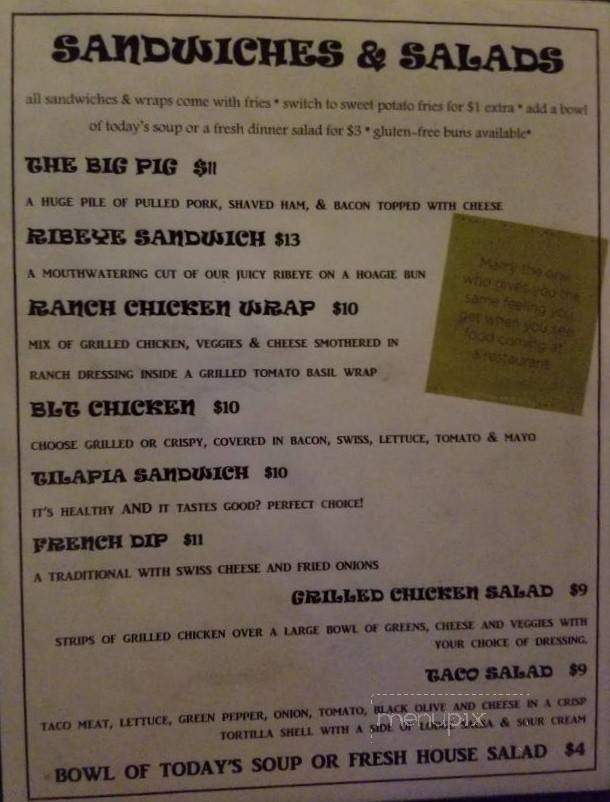 SANDWICHES & SALADS
all sandwiches & wraps come with fries * switch to sweet potato fries for $1 extra * add a bowl
of today's soup or a fresh dinner salad for $3 * gluten-free buns available*
THE BIG PIG $11
A HUGE PILE OF PULLED PORK, SHAVED HAM, & BACON TOPPED WITH CHEESE
RIBEYE SANDWICH $13
A MOUTHWATERING CUT OF OUR JUICY RIBEYE ON A HOAGIE BUN
Marry the one
who gives you the
same feeling you
get when you see
food coming at
a restaurant.
RANCH CHICKEN WRAP $10
MIX OF GRILLED CHICKEN, VEGGIES & CHEESE SMOTHERED IN
RANCH DRESSING INSIDE A GRILLED TOMATO BASIL WRAP
BLT CHICKEN $10
CHOOSE GRILLED OR CRISPY, COVERED IN BACON, SWISS, LETTUCE, TOMATO & MAYO
TILAPIA SANDWICH $10
IT'S HEALTHY AND IT TASTES GOOD? PERFECT CHOICE!
FRENCH DIP $11
A TRADITIONAL WITH SWISS CHEESE AND FRIED ONIONS
GRILLED CHICKEN SALAD $9
STRIPS OF GRILLED CHICKEN OVER A LARGE BOWL OF GREENS, CHEESE AND VEGGIES WITH
YOUR CHOICE OF DRESSING.
TACO SALAD $9
TACO MEAT, LETTUCE, GREEN PEPPER, ONION, TOMATO, BLACK OLIVE AND CHEESE IN A CRISP
TORTILLA SHELL WITH A SIDE OF SALSA & SOUR CREAM
menupix
BOWL OF TODAY'S SOUP OR FRESH HOUSE SALAD $4